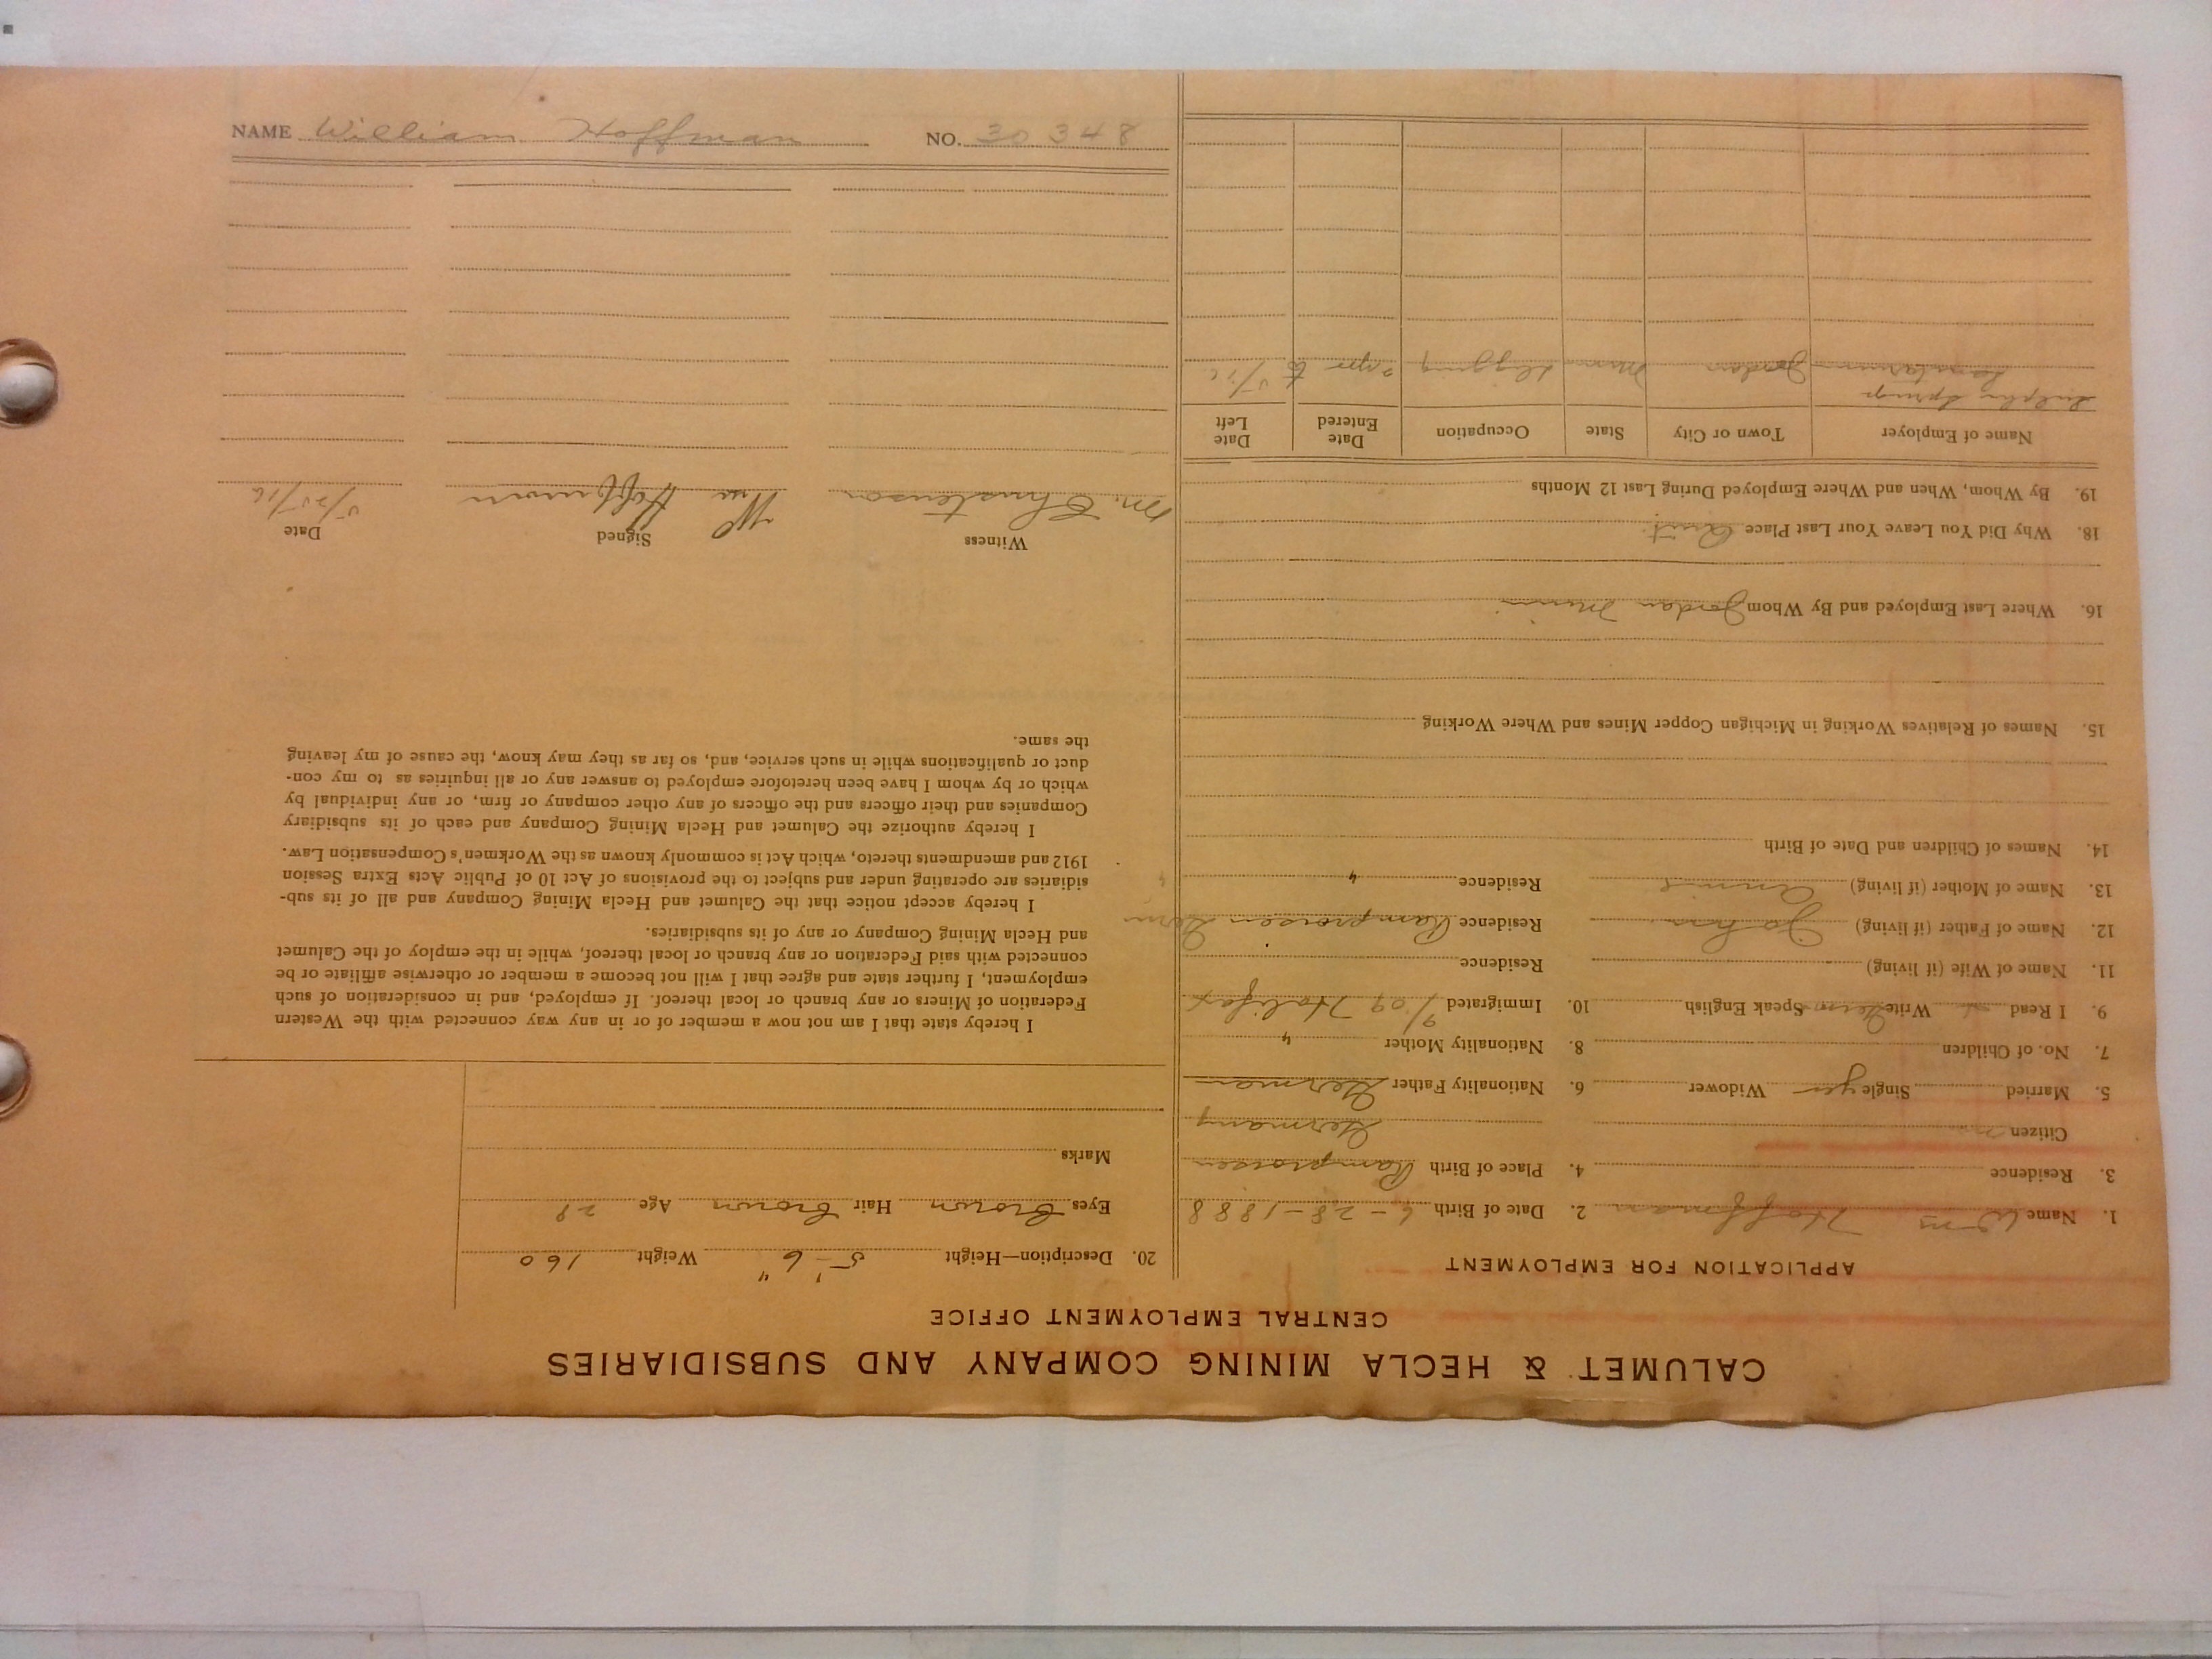 CALUMET & HECLA MINING COMPANY AND SUBSIDIARIES
CENTRAL EMPLOYMENT OFFICE
APPLICATION FOR EMPLOYMENT
1. Name Wm Hoffman 2. Date of Birth 6-28-1888
3. Residence 4. Place of Birth
Citizen Germany
5. Married Single yes Widower 6. Nationality Father German
7. No. of Children 8. Nationality Mother "
9. I Read Write Germ Speak English 10. Immigrated 9/09 Halifax
11. Name of Wife (if living) Residence
12. Name of Father (if living) John Residence Germ
13. Name of Mother (if living) Annie Residence " "
14. Names of Children and Date of Birth
15. Names of Relatives Working in Michigan Copper Mines and Where Working
16. Where Last Employed and By Whom Jordan Minn
18. Why Did You Leave Your Last Place Quit
19. By Whom, When and Where Employed During Last 12 Months
Name of Employer Town or City State Occupation Date Entered Date Left
Sulphur Springs
Sanitarium Jordan Minn Digging 2 yrs to 5/16
20. Description—Height 5'-6" Weight 160
Eyes brown Hair brown Age 28
Marks
I hereby state that I am not now a member of or in any way connected with the Western
Federation of Miners or any branch or local thereof. If employed, and in consideration of such
employment, I further state and agree that I will not become a member or otherwise affiliate or be
connected with said Federation or any branch or local thereof, while in the employ of the Calumet
and Hecla Mining Company or any of its subsidiaries.
I hereby accept notice that the Calumet and Hecla Mining Company and all of its sub-
sidiaries are operating under and subject to the provisions of Act 10 of Public Acts Extra Session
1912 and amendments thereto, which Act is commonly known as the Workmen's Compensation Law.
I hereby authorize the Calumet and Hecla Mining Company and each of its subsidiary
Companies and their officers and the officers of any other company or firm, or any individual by
which or by whom I have been heretofore employed to answer any or all inquiries as to my con-
duct or qualifications while in such service, and, so far as they may know, the cause of my leaving
the same.
Witness Signed Date
M. Christenson Wm Hoffmann 5/25/16
NAME William Hoffman NO. 30348